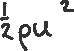 ½ρu²